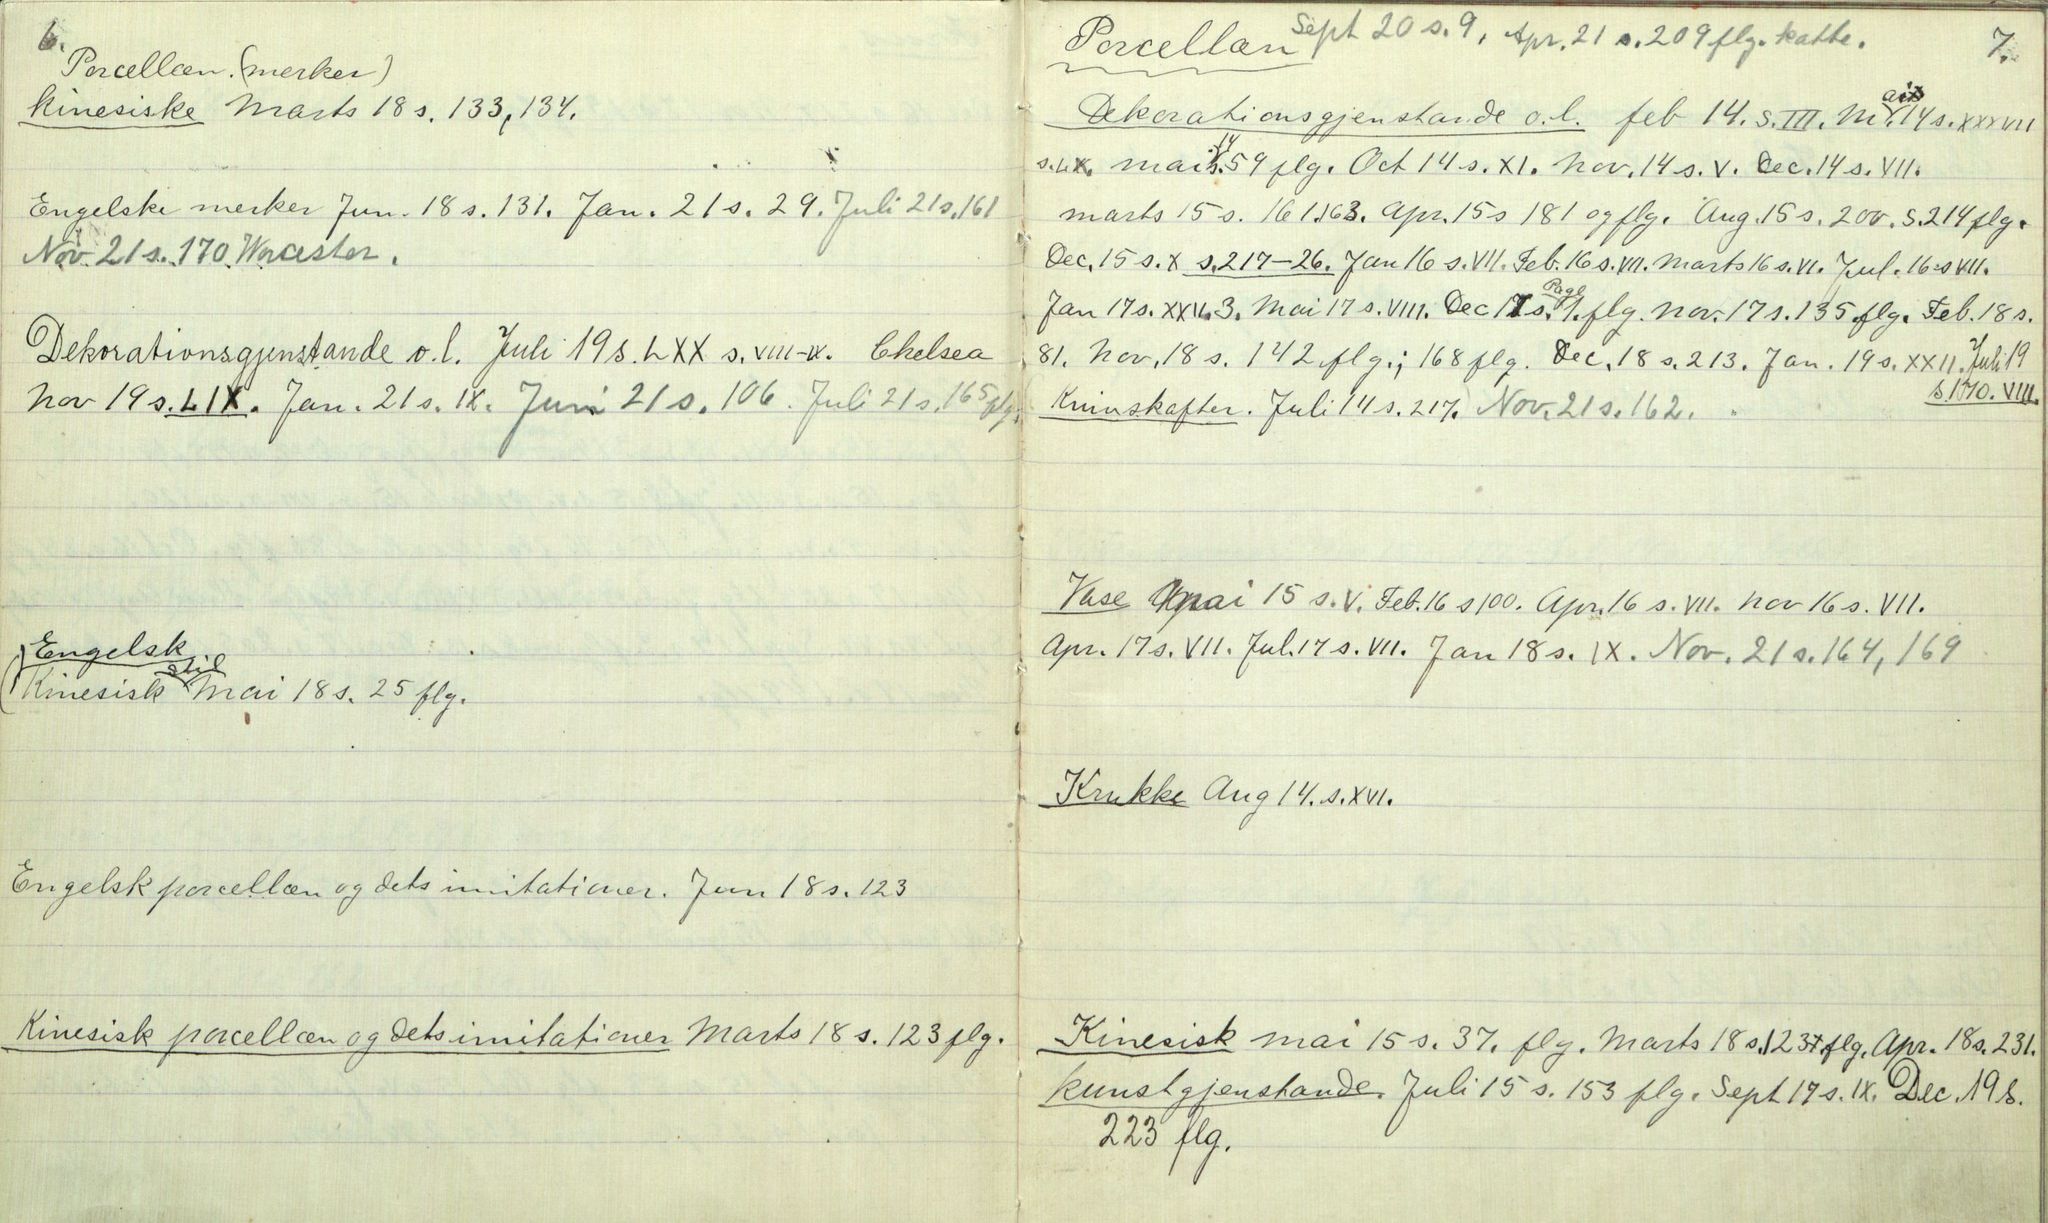 6.
Porcellæn. (merker)
kinesiske Marts 18 s. 133, 134.
Engelske merker Jun. 18 s. 131. Jan. 21 s. 29. Juli 21 s. 161
Nov. 21 s. 170 Worcester.
Dekorationsgjenstande o.l. Juli 19 s. LXX s. VIII-IX. Chelsea
Nov 19 s. LIX. Jan. 21 s. IX. Juni 21 s. 106. Juli 21 s. 165 flg.
Engelsk
Kinesisk stil Mai 18 s. 25 flg.
Engelsk porcellæn og dets imitationer. Jun 18 s. 123
Kinesisk porcellæn og dets imitationer Marts 18 s. 123 flg.
7.
Porcellæn Sept 20 s. 9, Apr. 21 s. 209 flg. katte.
Dekorationsgjenstande o.l. feb 14. s. III. 14 s. XXXVII
s. LX. mai 14 s. 59 flg. Oct 14 s. XI. Nov. 14 s. V. Dec. 14 s. VII.
marts 15 s. 161. 163. Apr. 15 s 181 og flg. Aug. 15 s. 200. s. 214 flg.
Dec. 15 s. X s. 217-26. Jan 16 s. VII. Feb. 16 s. VII. Marts 16 s. VI. Jul. 16 s VII.
Jan 17 s. XXV. 3. Mai 17 s. VIII. Dec 17 s. Page 1. flg. Nov. 17 s. 135 flg. Feb. 18 s.
81. Nov. 18 s. 142 flg.; 168 flg. Dec. 18 s. 213. Jan. 19 s. XXII. Juli 19
s. 170. VIII.
Knivskafter. Juli 14 s. 217. Nov. 21 s. 162.
Vase mai 15 s. V. Feb. 16 s 100. Apr. 16 s. VII. Nov 16 s. VII.
Apr. 17 s. VII. Jul. 17 s. VII. Jan 18 s. IX. Nov. 21 s. 164, 169
Krukke Aug 14. s. XVI.
Kinesisk mai 15 s. 37. flg. Marts 18 s. 123 flg. Apr. 18 s. 231.
kunstgjenstande. Juli 15 s. 153 flg. Sept 17 s. IX. Dec. 19 s.
223 flg.